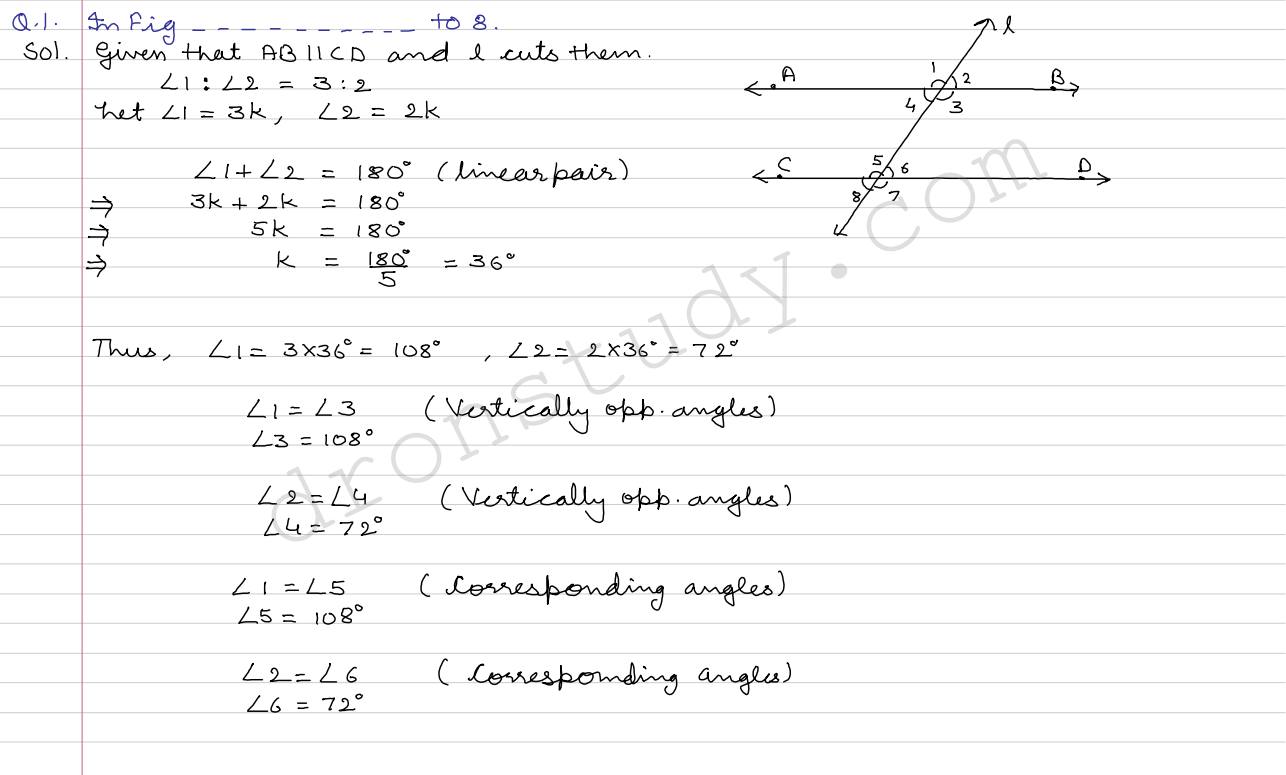 Q.1. In Fig ___________ to 8.
Sol. Given that AB || CD and l cuts them.
∠1 : ∠2 = 3 : 2
Let ∠1 = 3k, ∠2 = 2k
∠1 + ∠2 = 180° (linear pair)
⇒ 3k + 2k = 180°
⇒ 5k = 180°
⇒ k = 180°/5 = 36°
Thus, ∠1 = 3×36° = 108°, ∠2 = 2×36° = 72°
∠1 = ∠3 (Vertically opp. angles)
∠3 = 108°
∠2 = ∠4 (Vertically opp. angles)
∠4 = 72°
∠1 = ∠5 (Corresponding angles)
∠5 = 108°
∠2 = ∠6 (Corresponding angles)
∠6 = 72°
l
A 1 2 B
4 3
C 5 6 D
8 7
dronstudy.com